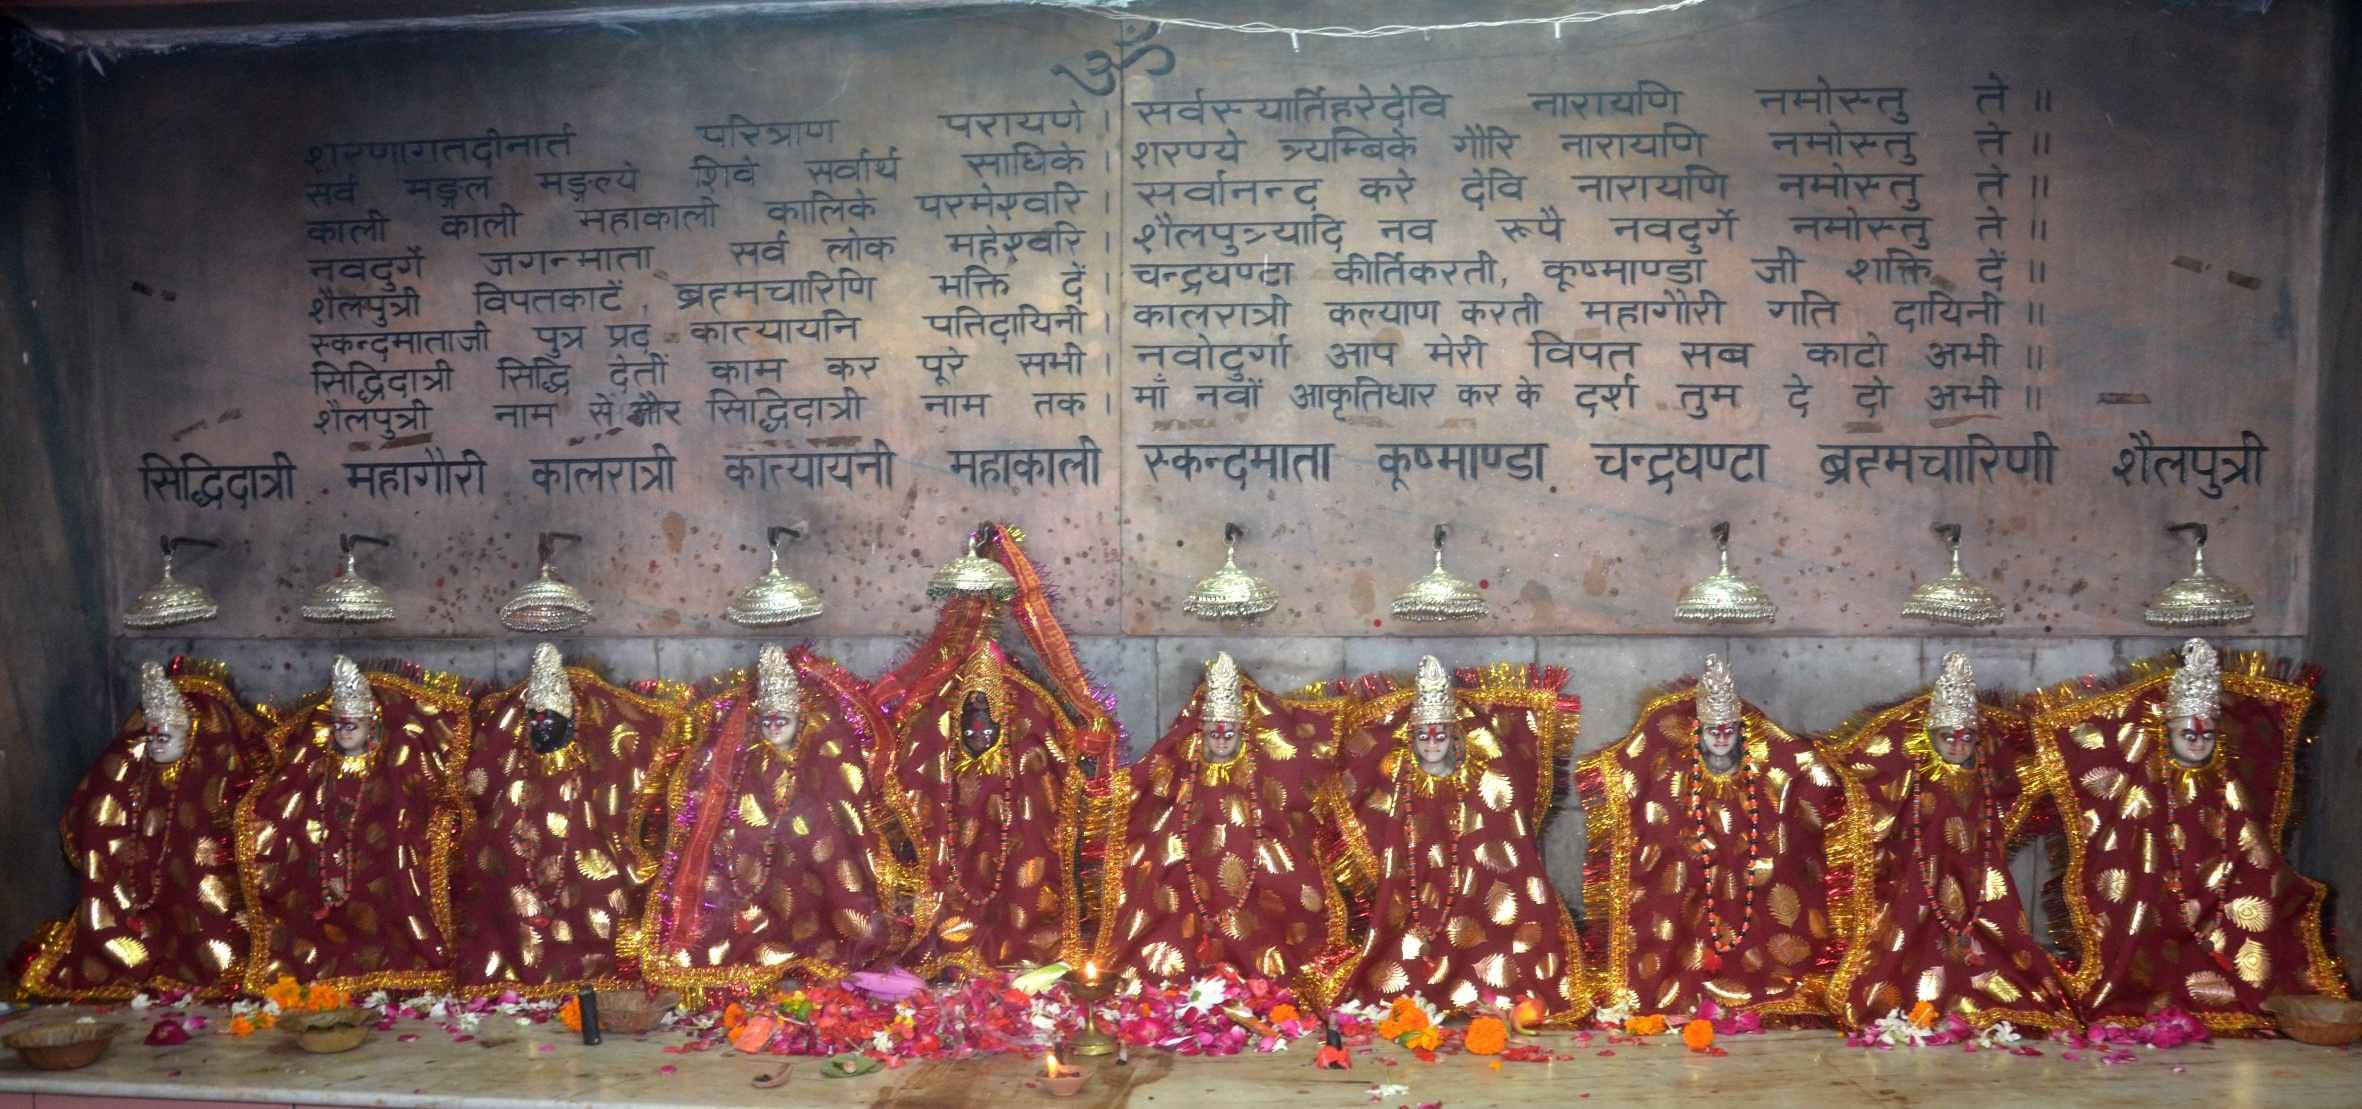 ॐ
शरणागतदीनार्त परित्राण परायणे । सर्वस्यार्तिहरेदेवि नारायणि नमोस्तु ते ॥
सर्व मङ्गल मङ्गल्ये शिवे सर्वार्थ साधिके । शरण्ये त्र्यम्बिके गौरि नारायणि नमोस्तु ते ॥
काली काली महाकाली कालिके परमेश्वरि । सर्वानन्द करे देवि नारायणि नमोस्तु ते ॥
नवदुर्गे जगन्माता सर्व लोक महेश्वरि । शैलपुत्र्यादि नव रूपै नवदुर्गे नमोस्तु ते ॥
शैलपुत्री विपतकाटें, ब्रहमचारिणि भक्ति दें । चन्द्रघण्टा कीर्तिकरती, कूष्माण्डा जी शक्ति दें ॥
स्कन्दमाताजी पुत्र प्रद कात्यायनि पतिदायिनी । कालरात्री कल्याण करती महागौरी गति दायिनी ॥
सिद्धिदात्री सिद्धि देतीं काम कर पूरे सभी । नवोदुर्गा आप मेरी विपत सब काटो अभी ॥
शैलपुत्री नाम से और सिद्धिदात्री नाम तक । माँ नवों आकृतिधार कर के दर्श तुम दे दो अभी ॥
सिद्धिदात्री महागौरी कालरात्री कात्यायनी महाकाली स्कन्दमाता कूष्माण्डा चन्द्रघण्टा ब्रहमचारिणी शैलपुत्री